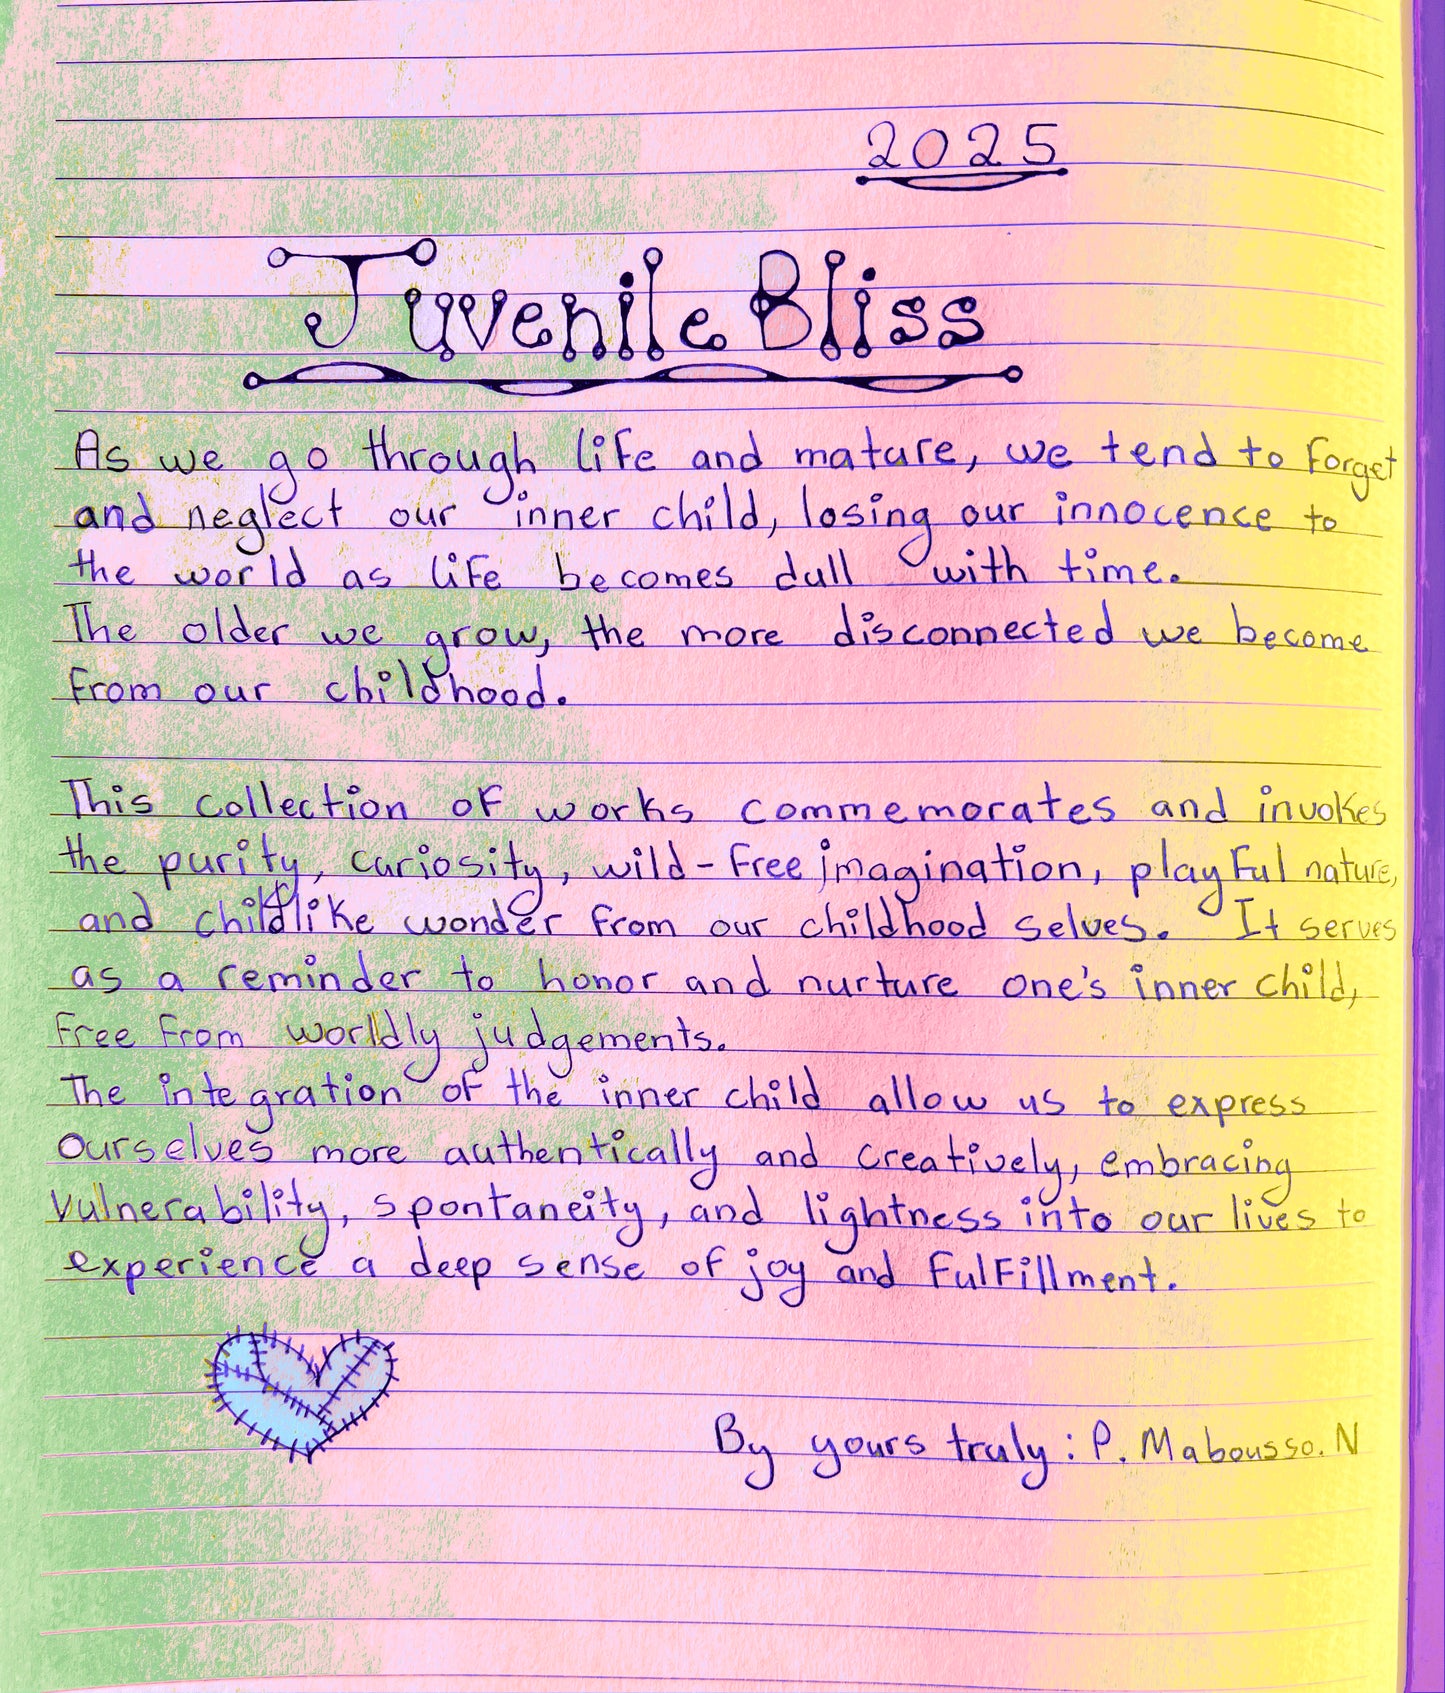 2025
Juvenile Bliss
As we go through life and mature, we tend to forget
and neglect our inner child, losing our innocence to
the world as life becomes dull with time.
The older we grow, the more disconnected we become
from our childhood.
This collection of works commemorates and invokes
the purity, curiosity, wild-free imagination, playful nature,
and childlike wonder from our childhood selves. It serves
as a reminder to honor and nurture one's inner child,
free from worldly judgements.
The integration of the inner child allow us to express
ourselves more authentically and creatively, embracing
vulnerability, spontaneity, and lightness into our lives to
experience a deep sense of joy and fulfillment.
By yours truly: P. Mabousso. N